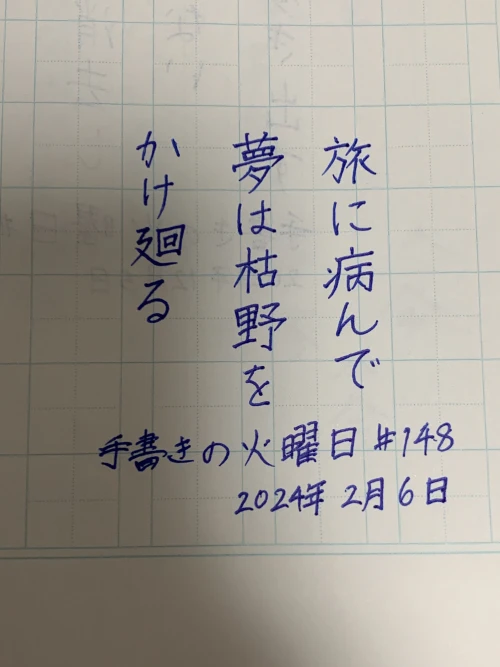 旅に病んで
夢は枯野を
かけ廻る
手書きの火曜日 #148
2024年 2月6日